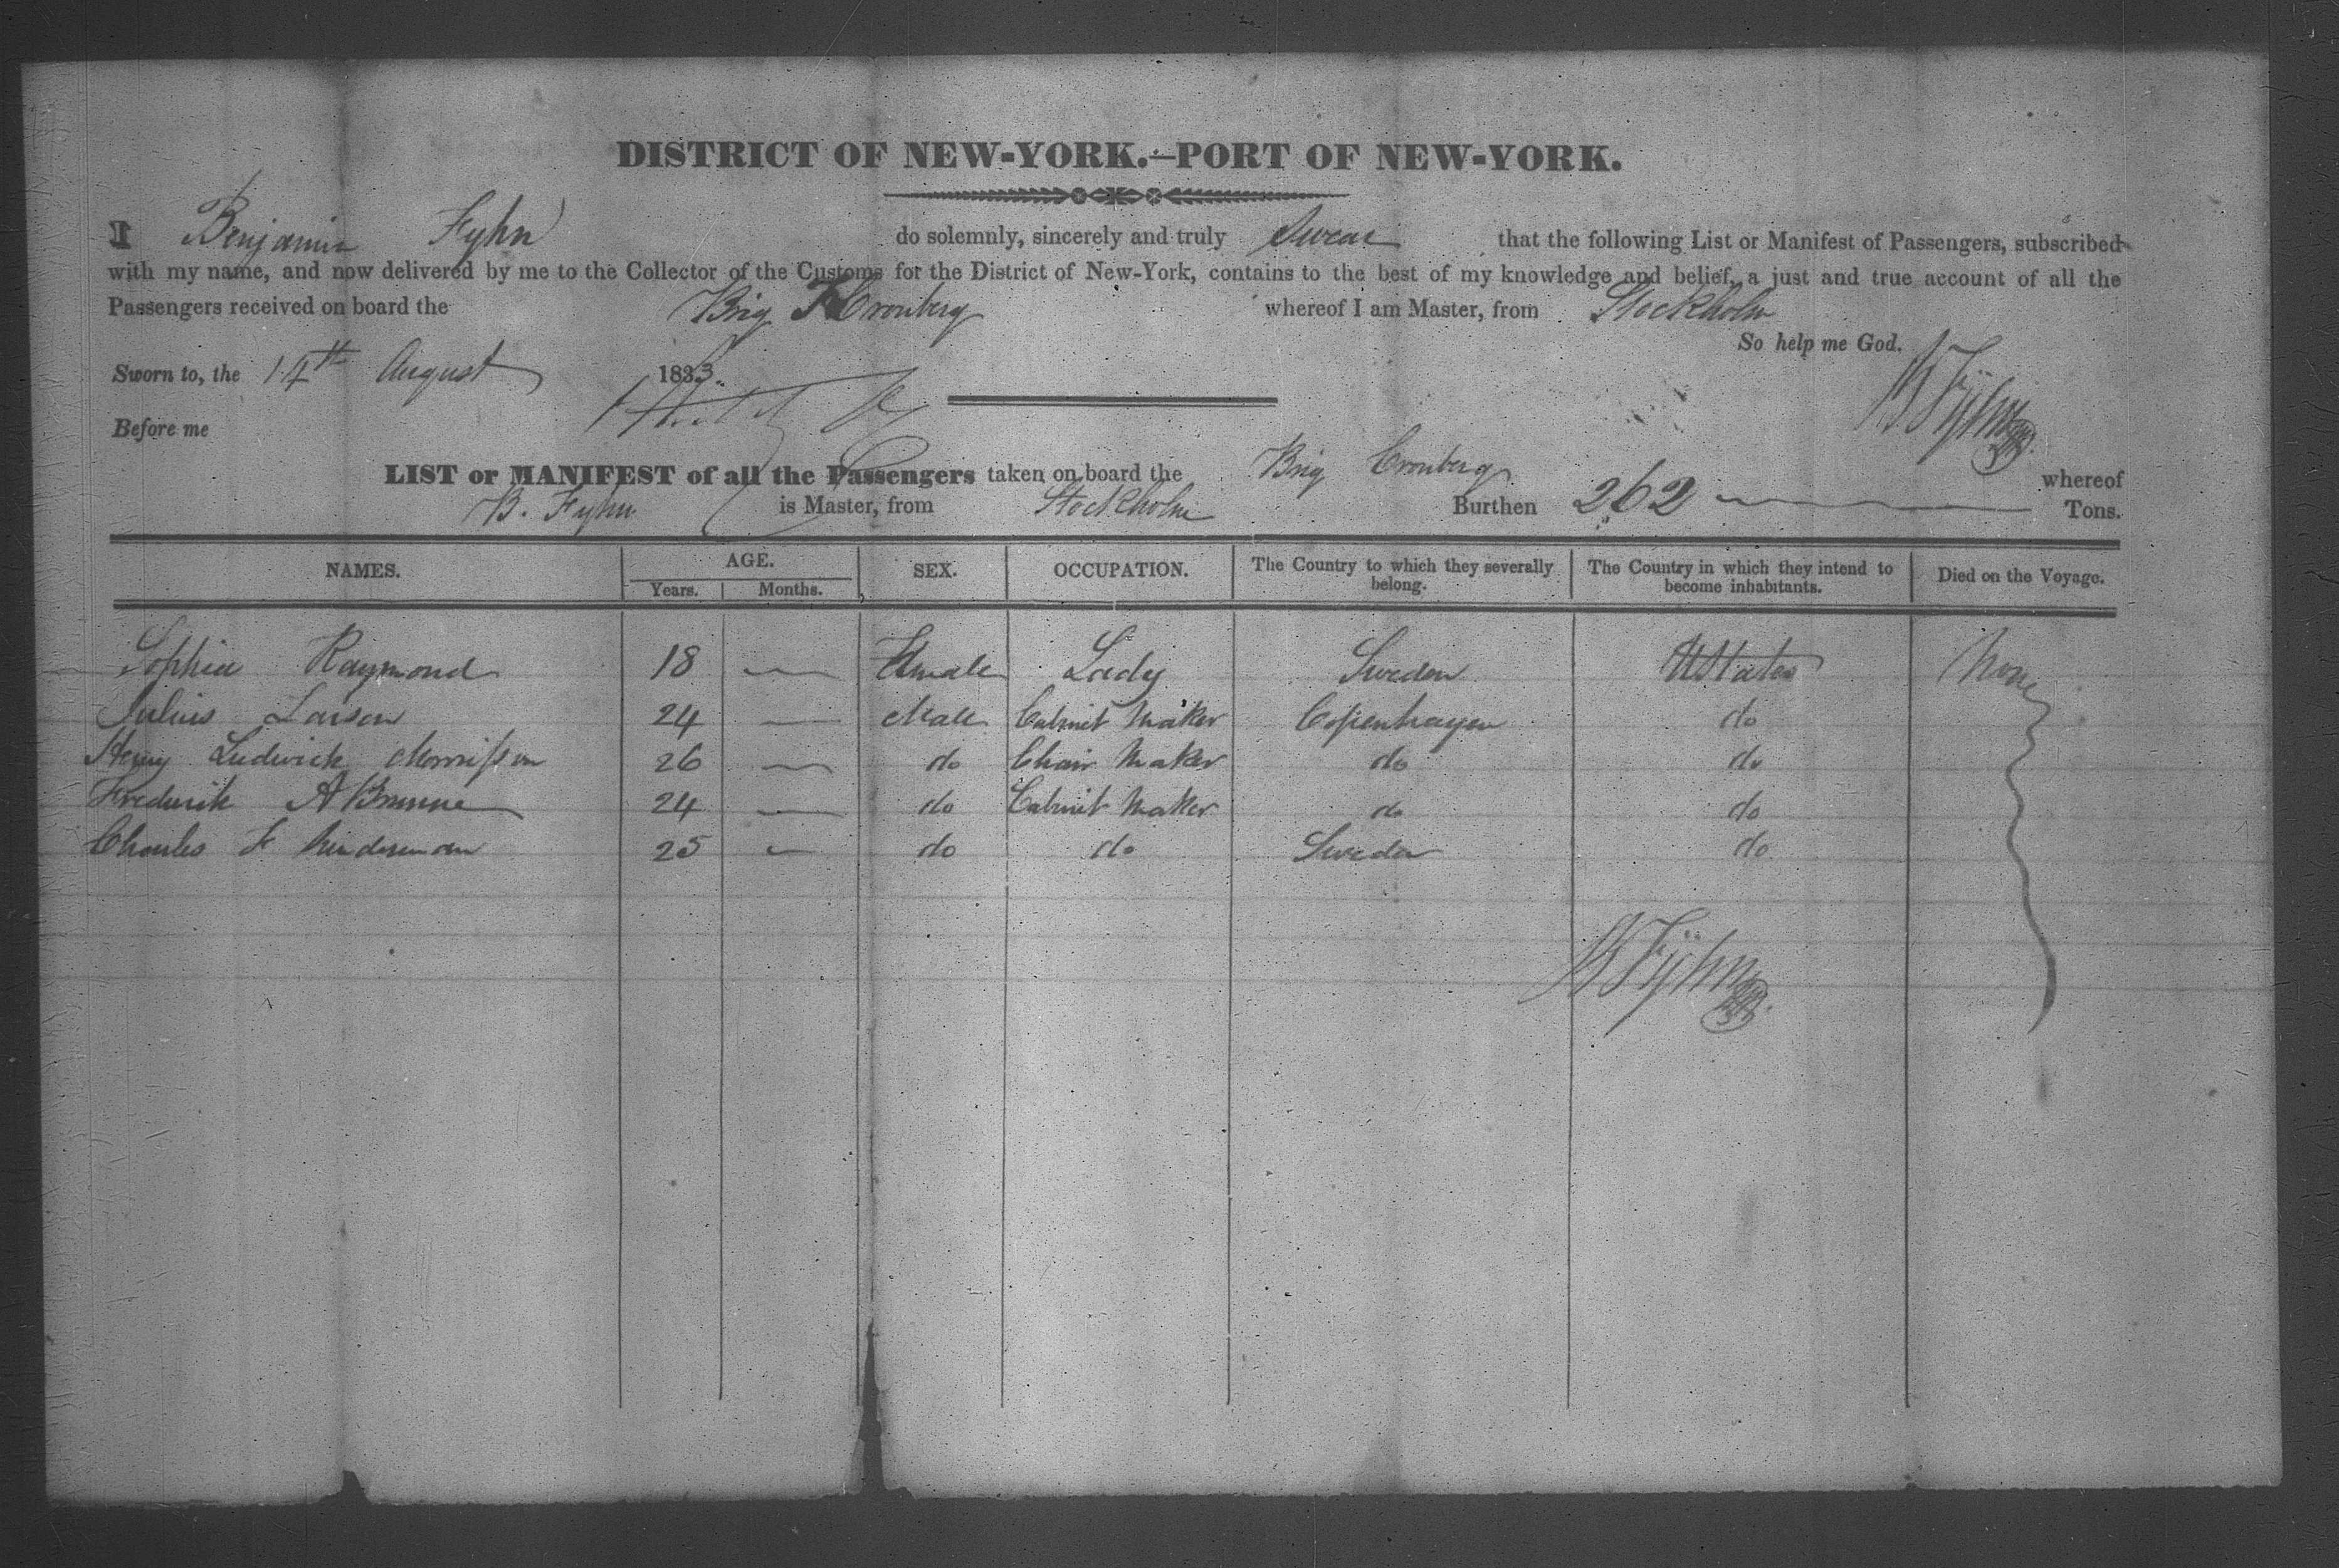 DISTRICT OF NEW-YORK.—PORT OF NEW-YORK.
I Benjamin Fyhn do solemnly, sincerely and truly Swear that the following List or Manifest of Passengers, subscribed
with my name, and now delivered by me to the Collector of the Customs for the District of New-York, contains to the best of my knowledge and belief, a just and true account of all the
Passengers received on board the Brig Cronberg whereof I am Master, from Stockholm
So help me God.
Sworn to, the 14th August 1833. B Fÿhn
Before me
LIST or MANIFEST of all the Passengers taken on board the Brig Cronberg whereof
B. Fyhn is Master, from Stockholm Burthen 262 Tons.
NAMES. AGE. SEX. OCCUPATION. The Country to which they severally belong. The Country in which they intend to become inhabitants. Died on the Voyage.
Years. Months.
Sophia Raymond 18 — Female Lady Sweden U States None
Julius Larsen 24 — Male Cabinet Maker Copenhagen do
Henry Ludwick Morrisson 26 — do Chair Maker do do
Frederik A Brunne 24 — do Cabinet Maker do do
Charles F 25 — do do Sweden do
B Fÿhn